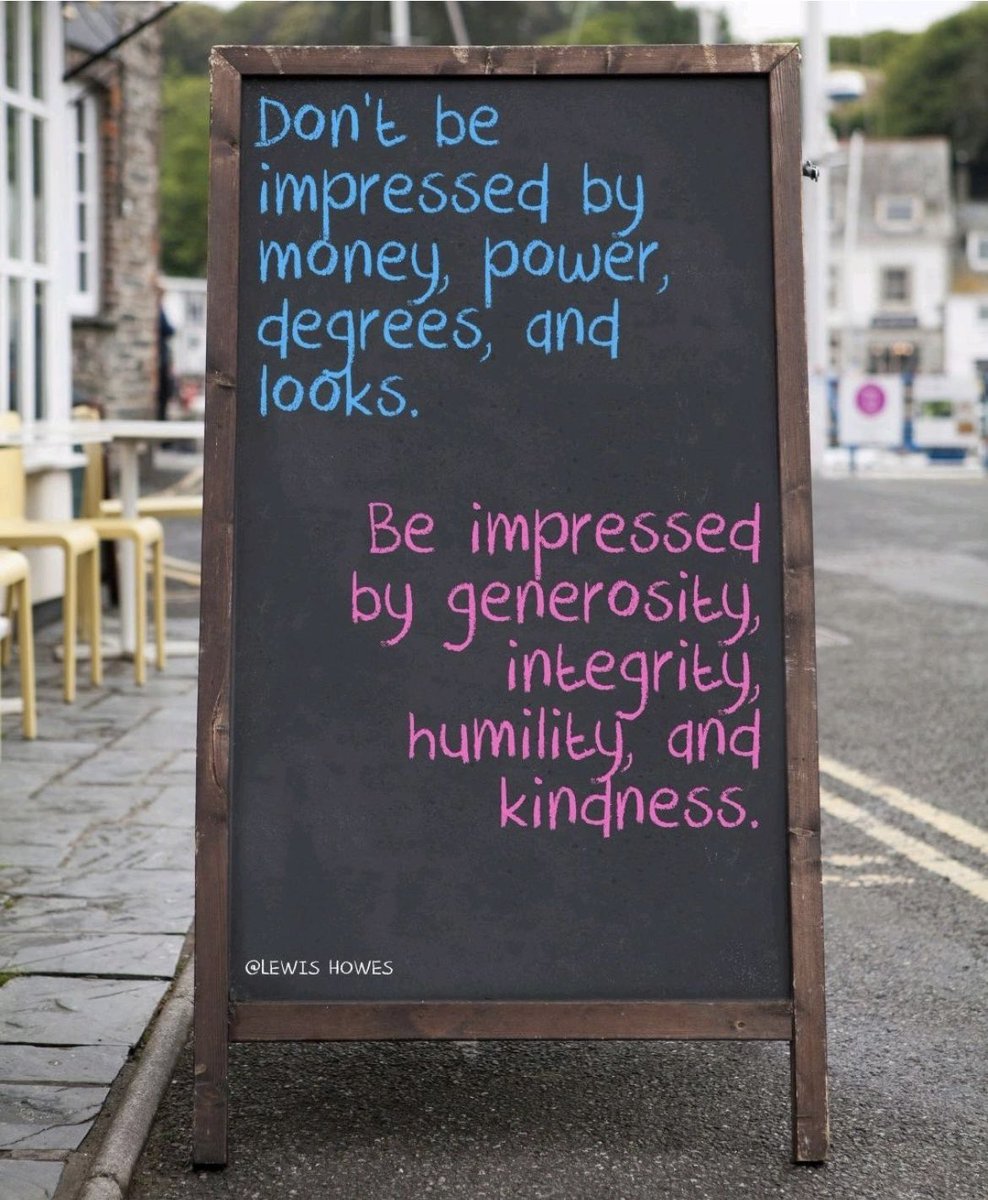 Don't be
impressed by
money, power,
degrees, and
looks.
Be impressed
by generosity,
integrity,
humility, and
kindness.
@LEWIS HOWES